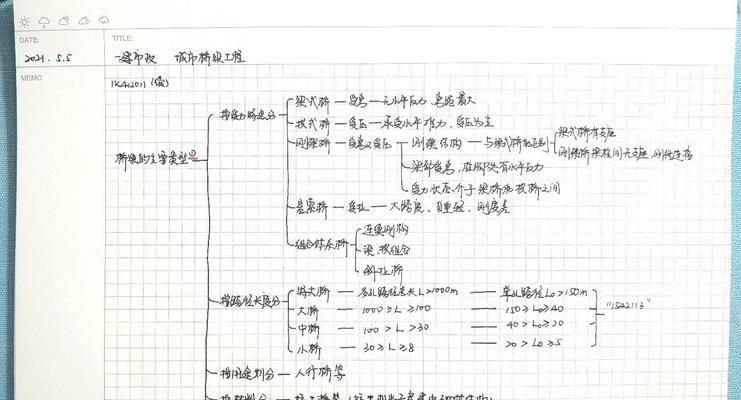 DATE:
2021.5.5
TITLE:
一建市政 城市桥梁工程
MEMO
1K412011 (续)
桥梁的主要类型②
按受力特点分
梁式桥 — 受弯 — 无水平反力、弯矩最大
拱式桥 — 受压 — 承受水平推力、受压为主
刚架桥 — 受弯又受压 — 刚架结构 — 与梁式桥的区别
梁式桥有支座
刚架桥梁柱间无支座,刚性连接
梁部受弯,柱脚处有水平反力
受力状态介于梁桥和拱桥之间
悬索桥 — 受拉 — 大跨度、自重轻、刚度差
组合体系桥
连续刚构
梁、拱组合
斜拉桥
按跨径长度分
特大桥 — 多孔跨径总长L>1000m — 单孔跨径L0>150m
大桥 — 1000≥L≥100 — 150≥L0≥40
中桥 — 100>L>30 — 40>L0≥20
小桥 — 30≥L≥8 — 20>L0≥5
"1542113"
按用途划分 — 人行桥等